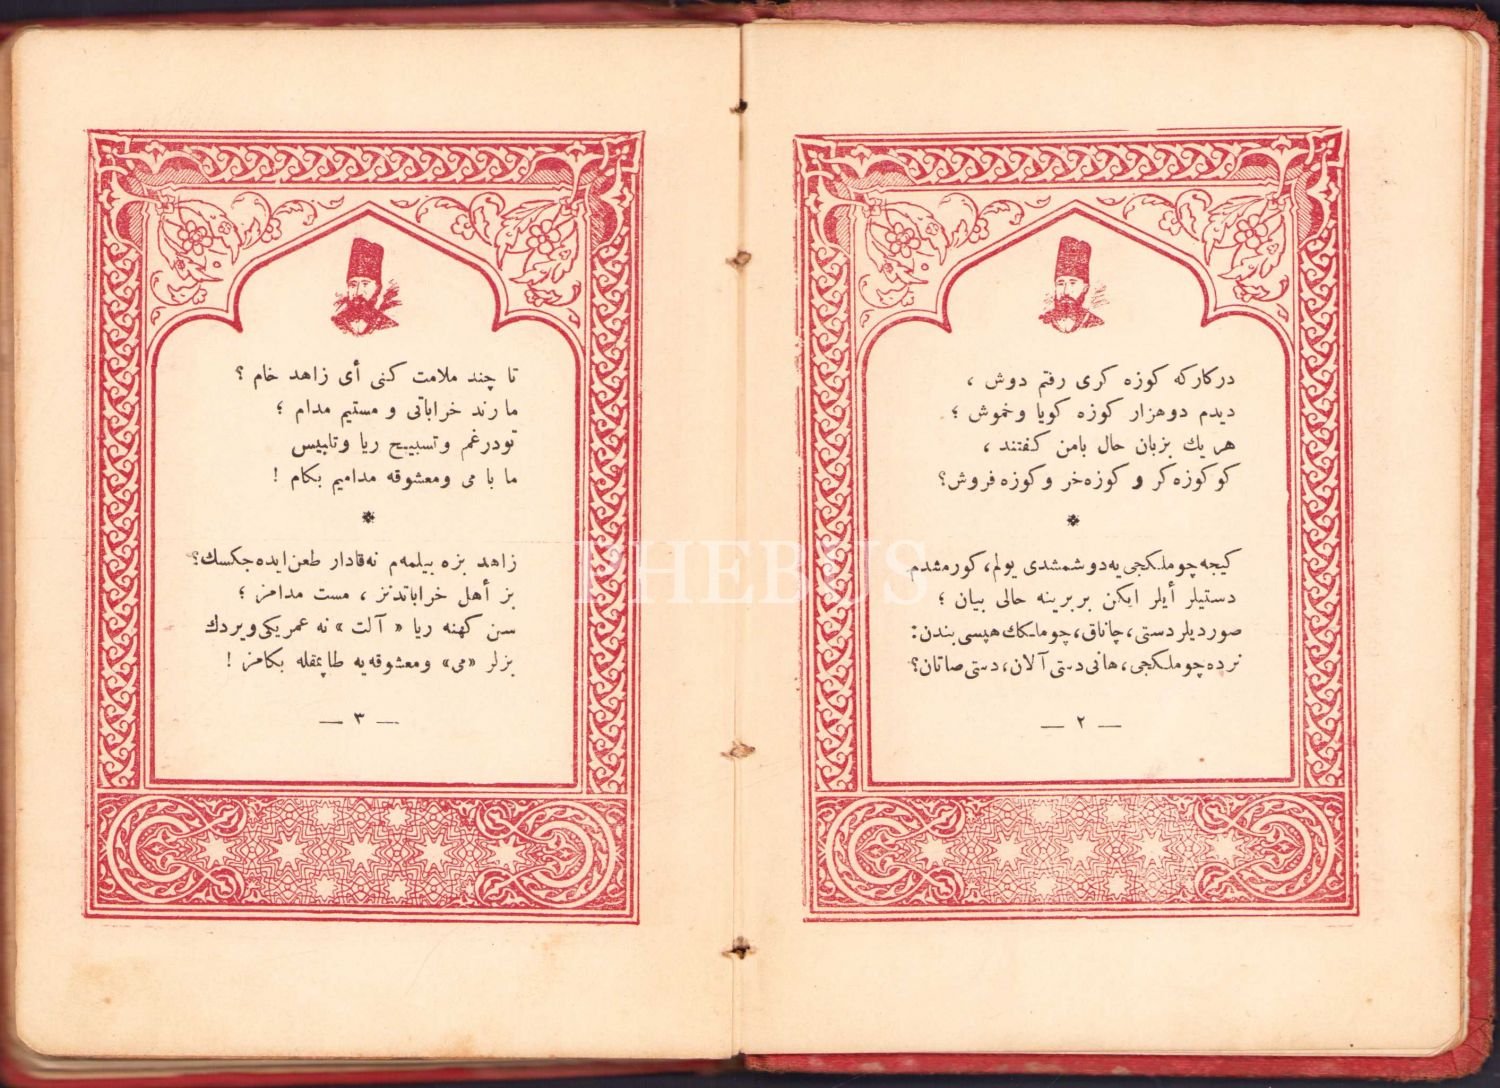 دركاركه كوزه كرى رفتم دوش ،
ديدم دوهزار كوزه كويا وخموش ؛
هر يك بزبان حال بامن كفتند ،
كو كوزه كر و كوزه خر و كوزه فروش؟
*
كيجه چوملكجى يه دوشمشدى يولم، كورمشدم
دستيلر أيلر ايكن بربرينه حالى بيان ؛
صورديلر دستى، چاناق، چوملك هپسى بندن:
نرده چوملكجى، هانى دستى آلان، دستى صاتان؟
— ٢ —
تا چند ملامت كنى أى زاهد خام ؟
ما رند خراباتى و مستيم مدام ؛
تودرغم وتسبيح ريا وتلبيس
ما با مى ومعشوقه مداميم بكام !
*
زاهد بزه بيلمه م نه قادار طعن ايده جكسك؟
بز أهل خراباتدنز ، مست مدامز ؛
سن كهنه ريا « آلت » نه عمريكى ويردك
بزلر «مى» ومعشوقه يه طاپمقله بكامز !
— ٣ —
PHEBUS